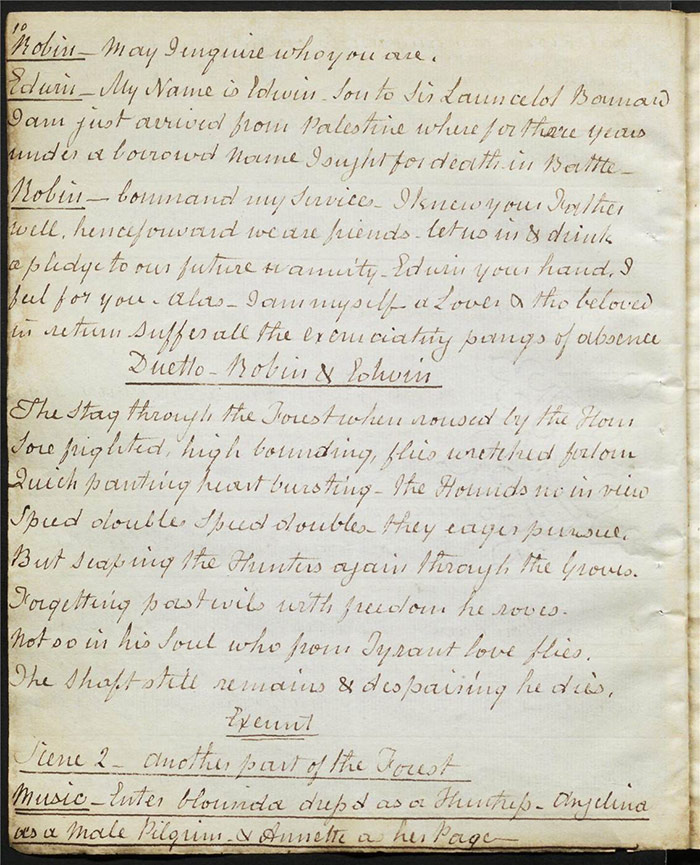 10
Robin - May I enquire who you are.
Edwin - My Name is Edwin - Son to Sir Launcelot Bonnard
I am just arrived from Palestine where for three years
under a borrowd Name I sught for death in Battle -
Robin - Command my Services - I knew your Father
well, henceforward we are friends - let us in & drink
a pledge to our future amity - Edwin your hand, I
feel for you - alas - I am myself a Lover & tho beloved
in return suffer all the excruciating pangs of absence
Duetto - Robin & Edwin
The Stag through the Forest when roused by the Horn
Sore frighted, high bounding, flies wretched forlorn
Quick panting heart bursting - the Hounds no in view
Speed doubles Speed doubles - they eager pursue.
But scaping the Hunters again through the Groves.
Forgetting past evils with freedom he roves -
Not so in his Soul who from Tyrant love flies.
The Shaft still remains & despairing he dies.
Exeunt
Scene 2 - another part of the Forest
Music - Enter Clorinda dresd as a Huntress - Angelina
as a Male Pilgrim - & Annette as her Page -